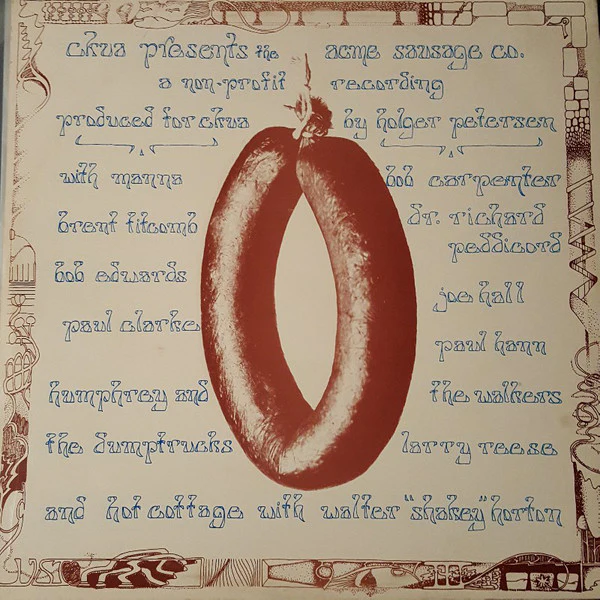 ckua presents the acme sausage co.
a non-profit recording
produced for ckua by holger petersen
with manna bob carpenter
brent titcomb dr. richard peddicord
bob edwards joe hall
paul clarke paul hann
humphrey and the dumptrucks the walkers
larry reese
and hot cottage with walter "shakey" horton